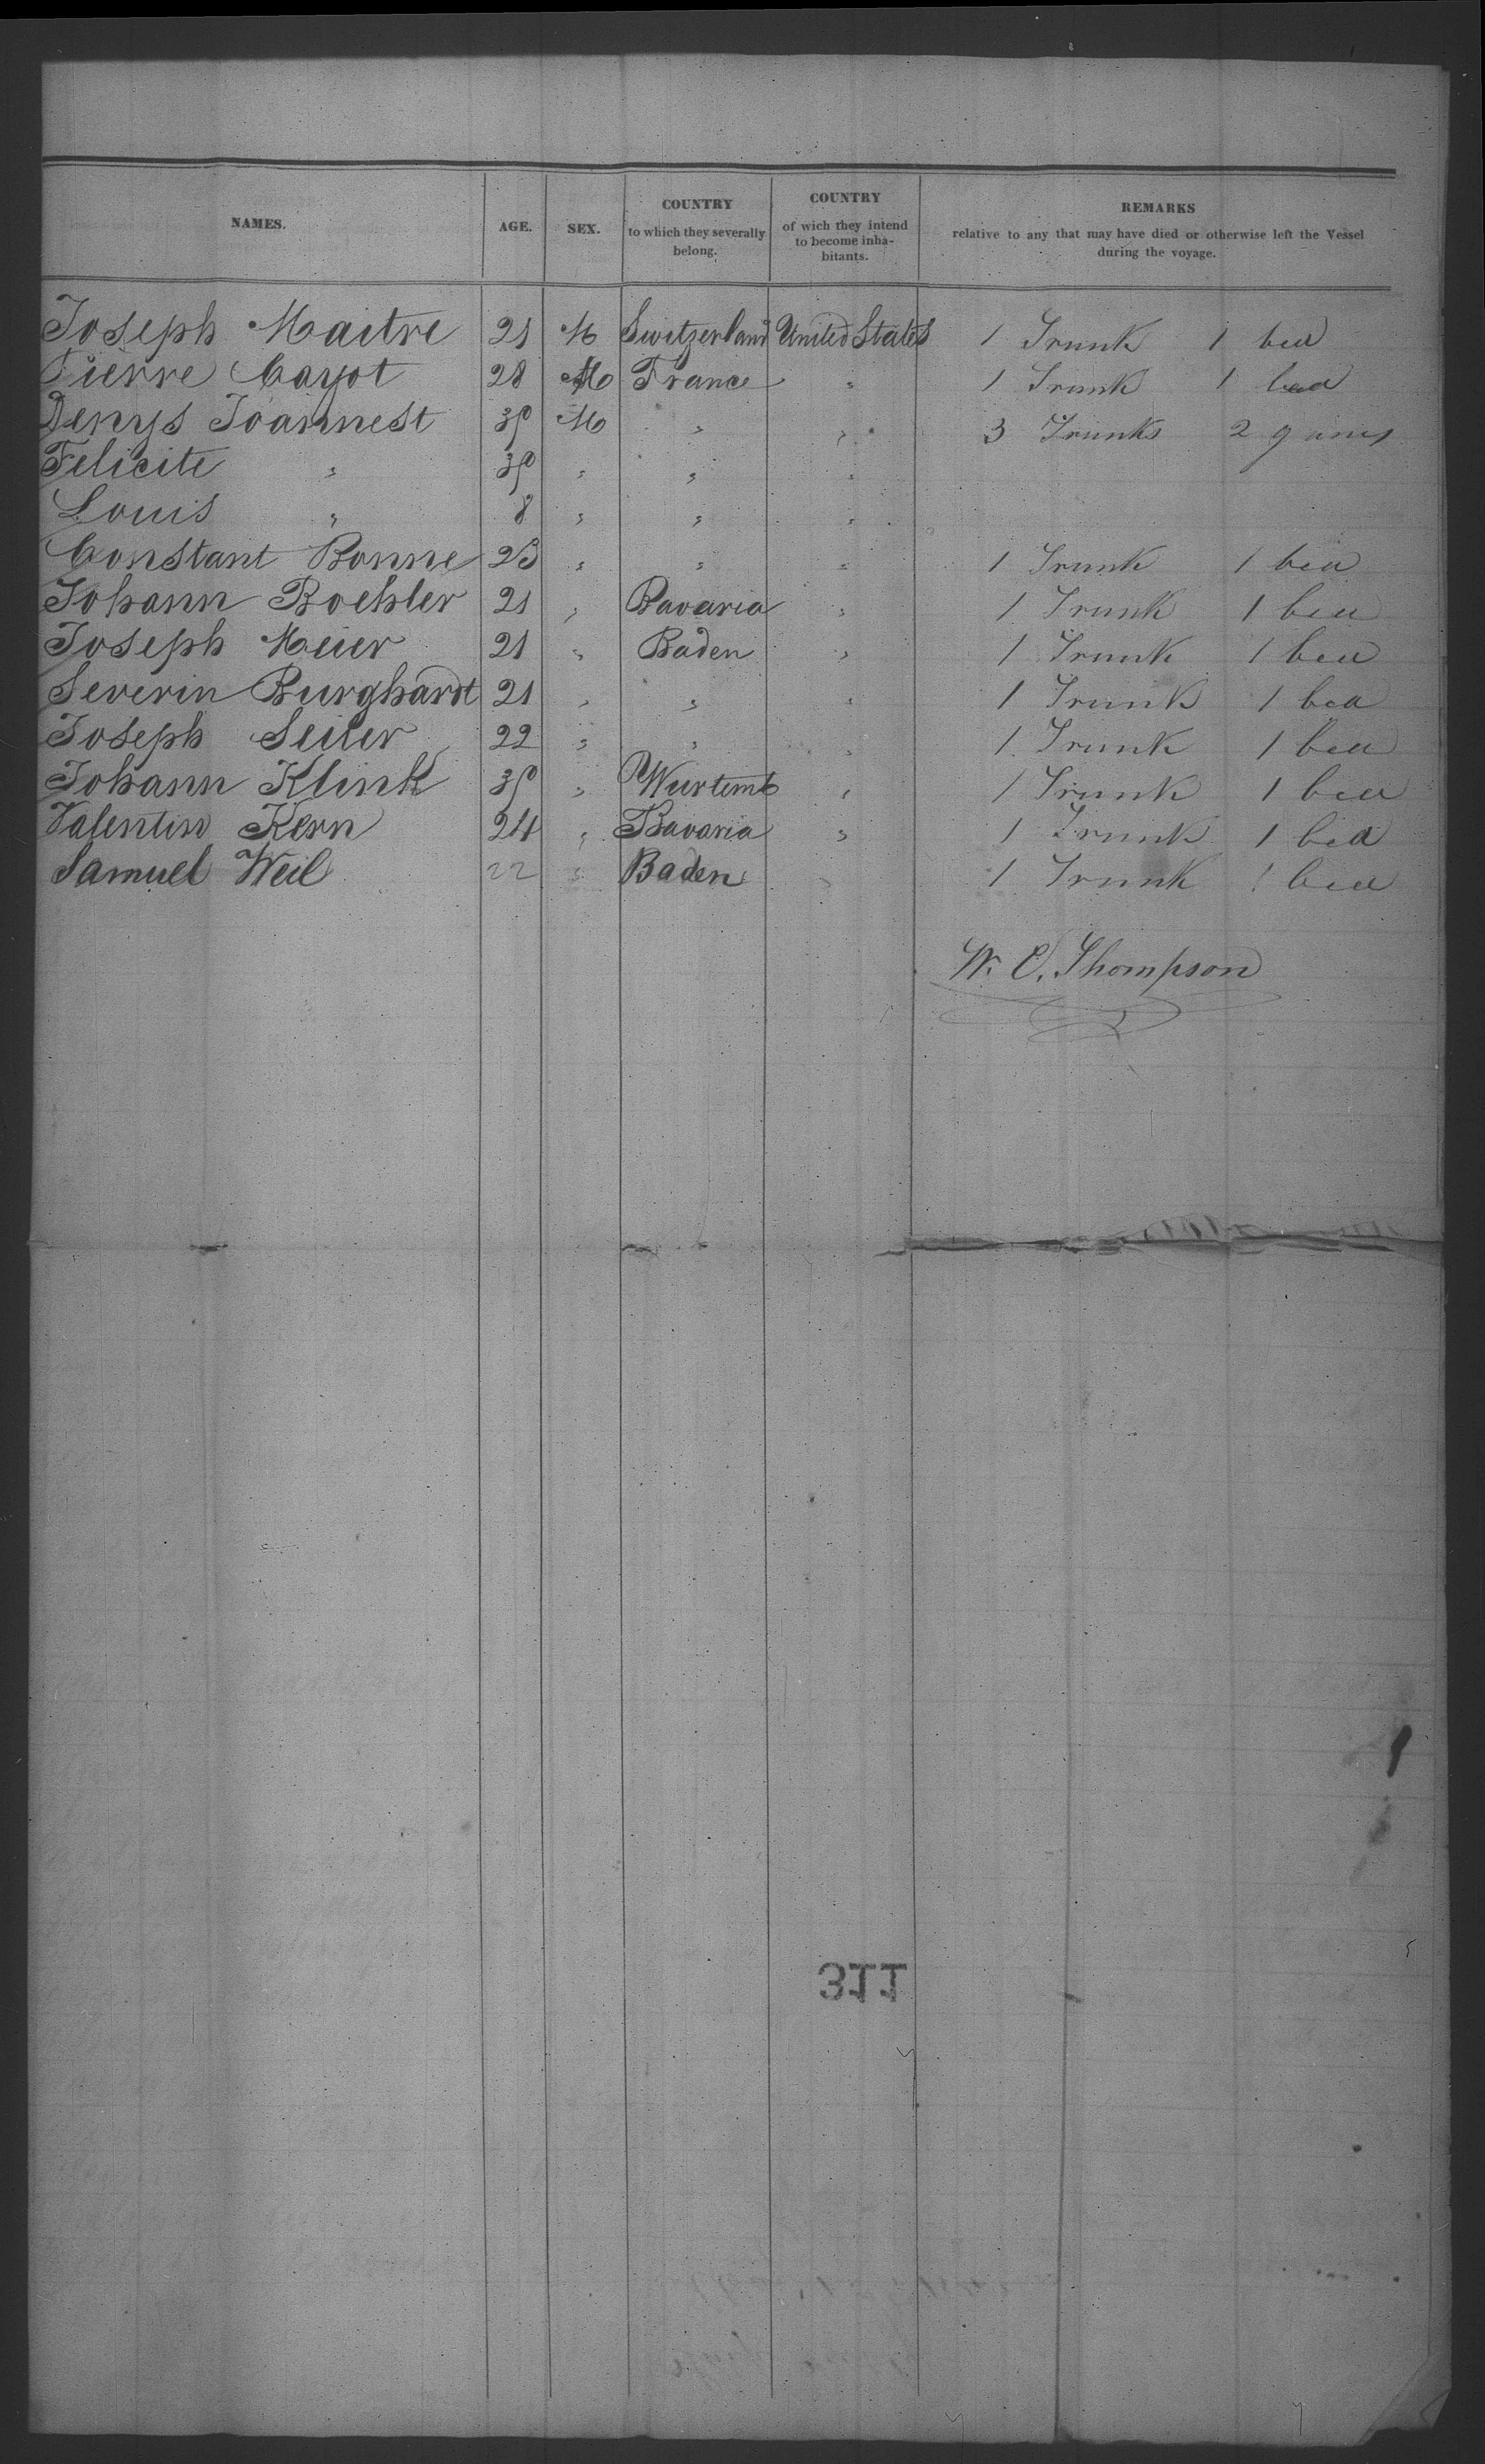 NAMES. AGE. SEX. COUNTRY to which they severally belong. COUNTRY of wich they intend to become inha-bitants. REMARKS relative to any that may have died or otherwise left the Vessel during the voyage.
Joseph Maitre 21 M Switzerland United States 1 Trunk 1 bed
Pierre Cayot 28 M France " 1 Trunk 1 bed
Denys Joannest M " " 3 Trunks 2 guns
Felicite " " " "
Louis " 8 " " "
Constant Bonne 23 " " " 1 Trunk 1 bed
Johann Boehler 21 " Bavaria " 1 Trunk 1 bed
Joseph Meier 21 " Baden " 1 Trunk 1 bed
Severin Burghardt 21 " " " 1 Trunk 1 bed
Joseph Seiler 22 " " " 1 Trunk 1 bed
Johann Klink " Wurtemb " 1 Trunk 1 bed
Valentin Kern 24 " Bavaria " 1 Trunk 1 bed
Samuel Weil 22 " Baden " 1 Trunk 1 bed
W. C. Thompson
311